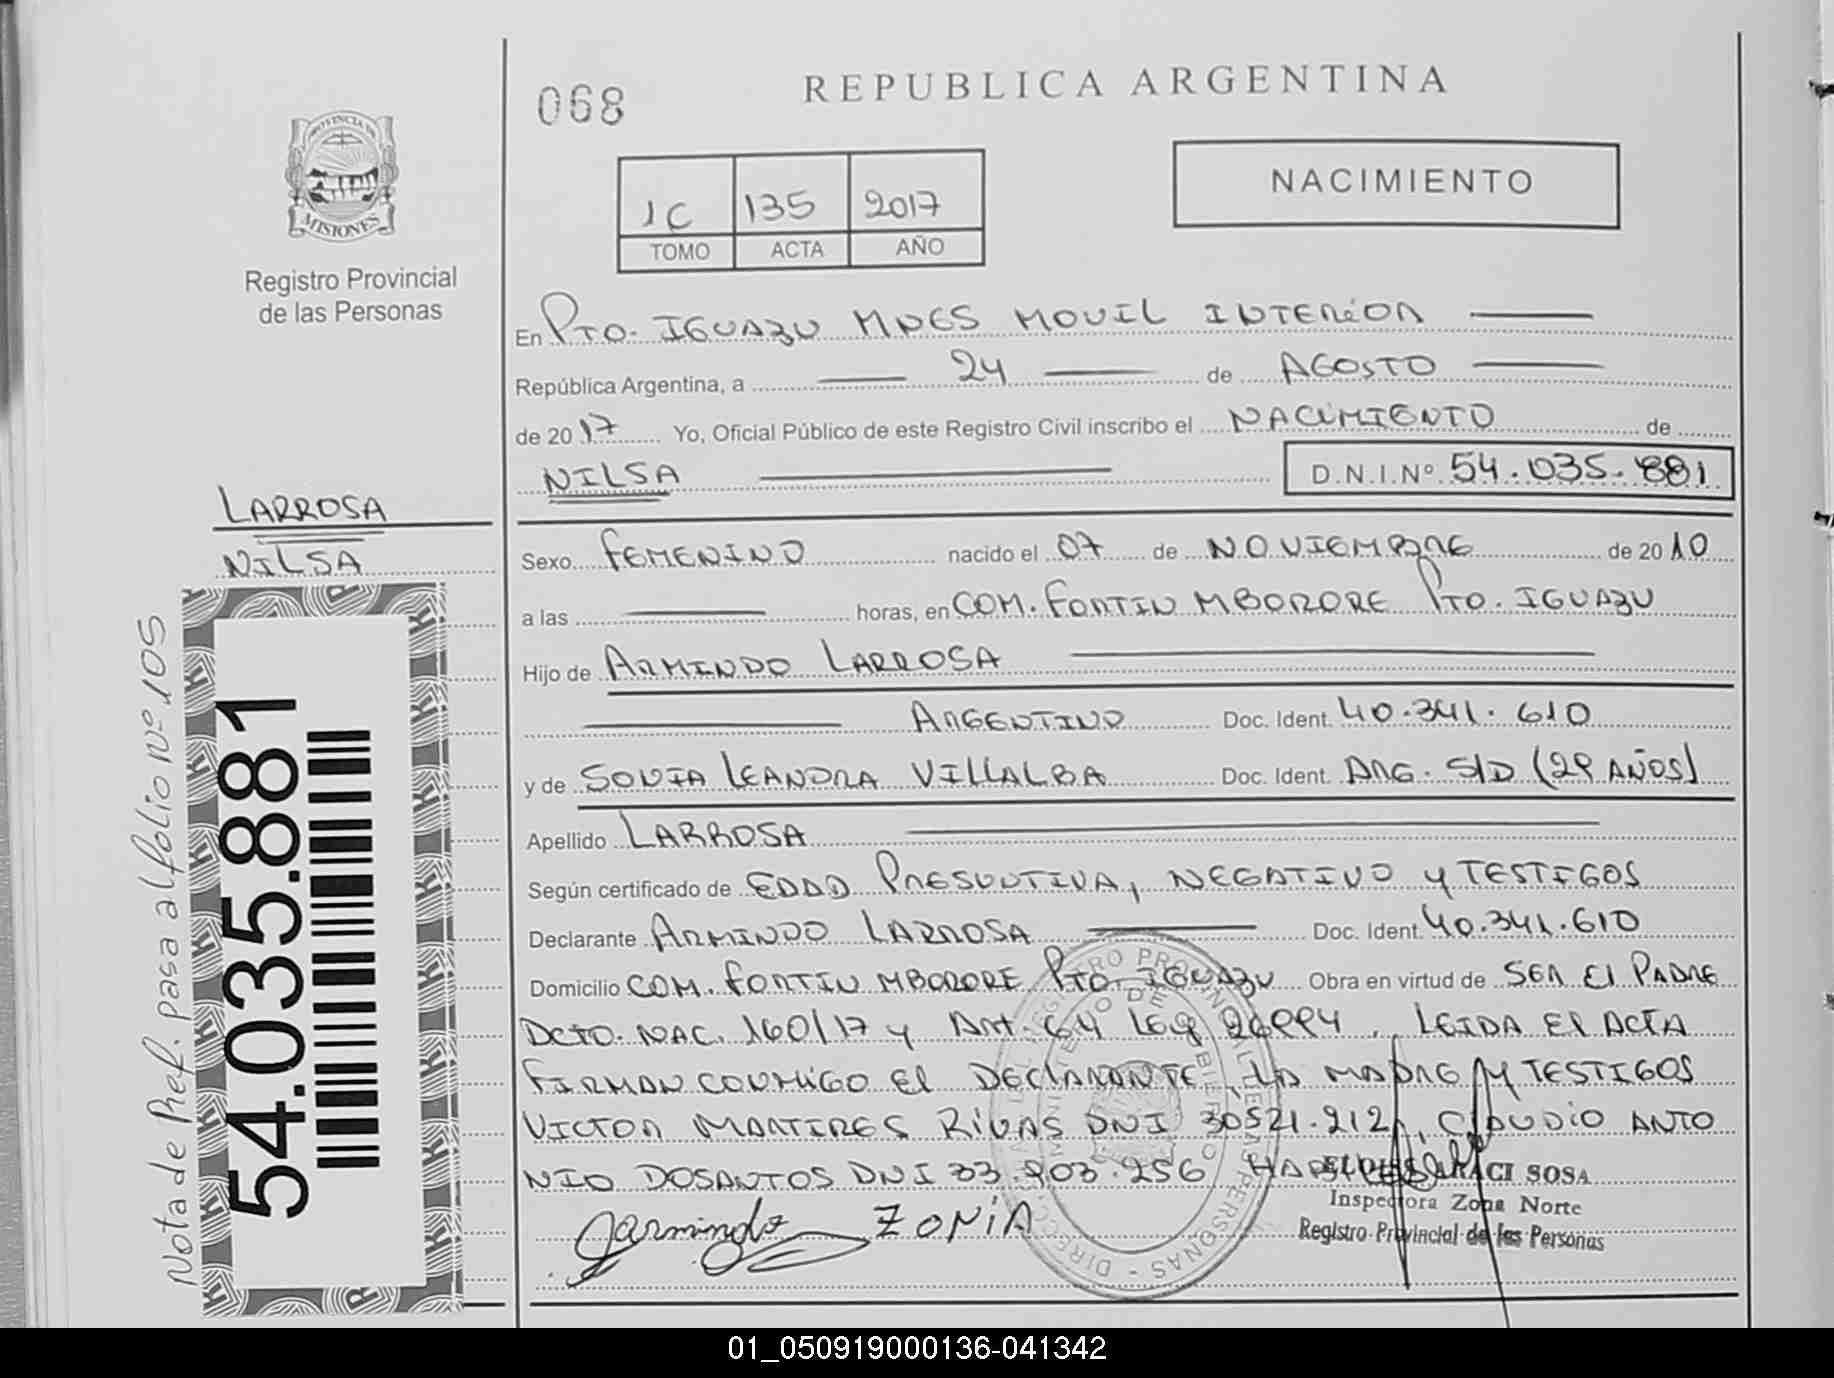 068
REPUBLICA ARGENTINA
PROVINCIA DE
MISIONES
Registro Provincial
de las Personas
1C 135 2017
TOMO ACTA AÑO
NACIMIENTO
En PTO. IGUAZU MNES MOVIL INTERIOR
República Argentina, a 24 de AGOSTO
de 2017 Yo, Oficial Público de este Registro Civil inscribo el NACIMIENTO de
NILSA D.N.I.Nº 54.035.881
LARROSA
NILSA
Sexo FEMENINO nacido el 07 de NOVIEMBRE de 2010
a las horas, en COM. FORTIN MBORORE PTO. IGUAZU
Hijo de ARMINDO LARROSA
ARGENTINO Doc. Ident. 40.341.610
y de SONIA LEANDRA VILLALBA Doc. Ident. ARG. S/D (29 AÑOS)
Apellido LARROSA
Según certificado de EDAD PRESUNTIVA, NEGATIVO y TESTIGOS
Declarante ARMINDO LARROSA Doc. Ident. 40.341.610
Domicilio COM. FORTIN MBORORE PTO. IGUAZU Obra en virtud de SER El PADRE
DCTO. NAC. 160/17 y Art. 64 Ley 26994. LEIDA El ACTA
FIRMAN CONMIGO El DEClARANTE, LA MADRE y TESTIGOS
VICTOR MARTIRES RIVAS DNI 30521.212, ClAUDIO ANTO
NIO DOSANTOS DNI 33.903.256
Jarmindo ZONIA
SOSA
Inspectora Zona Norte
Registro Provincial de las Personas
54.035.881
Nota de Ref. pasa al folio Nº 105
01_050919000136-041342